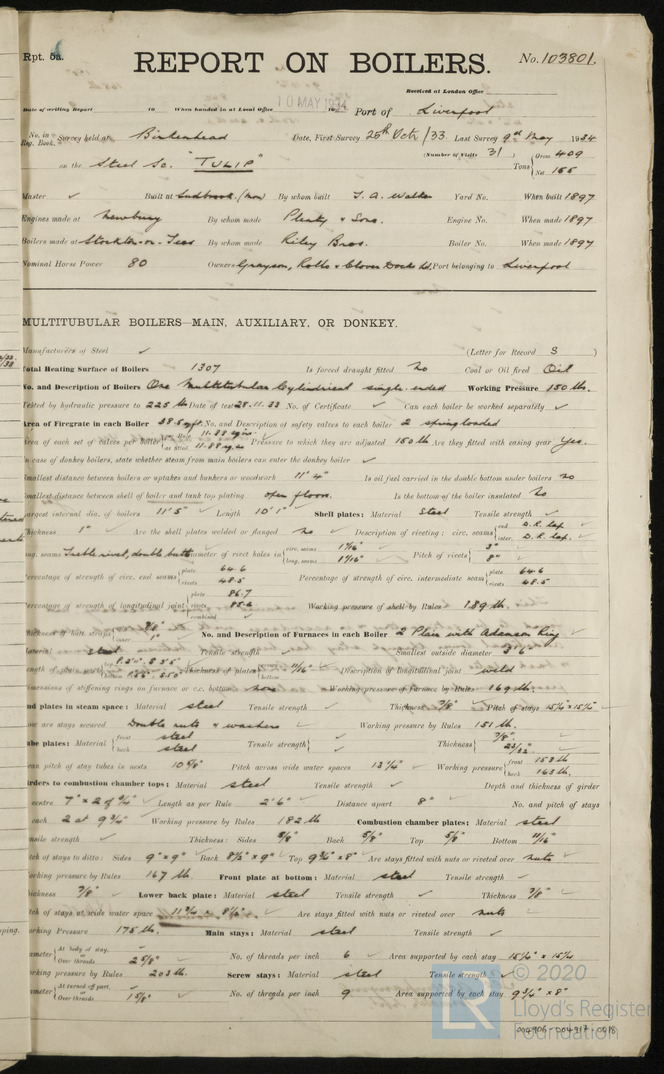 Rpt. 5a.
REPORT ON BOILERS.
No. 103801.
Received at London Office
Date of writing Report 19 When handed in at Local Office 10 MAY 1934 19 Port of Liverpool
No. in Reg. Book. Survey held at Birkenhead Date, First Survey 25th Oct /33 Last Survey 9th May 1934
(Number of Visits 31 )
on the Steel Sc. "TULIP" Tons { Gross 409 Net 166
Master ✓ Built at Sudbrook (Mon) By whom built T. A. Walker Yard No. When built 1897
Engines made at Newbury By whom made Plenty & Sons. Engine No. When made 1897
Boilers made at Stockton-on-Tees By whom made Riley Bros. Boiler No. When made 1897
Nominal Horse Power 80 Owners Grayson, Rollo & Clover Docks Ld. Port belonging to Liverpool
MULTITUBULAR BOILERS—MAIN, AUXILIARY, OR DONKEY.
Manufacturers of Steel ✓ (Letter for Record S )
Total Heating Surface of Boilers 1307 Is forced draught fitted No Coal or Oil fired Oil
No. and Description of Boilers One Multitubular Cylindrical single-ended Working Pressure 150 lb.
Tested by hydraulic pressure to 225 lb Date of test 28.11.33 No. of Certificate ✓ Can each boiler be worked separately ✓
Area of Firegrate in each Boiler 38.5 sq ft. No. and Description of safety valves to each boiler 2 spring loaded
Area of each set of valves per boiler 11.88 sq ins 11.88 sq ins Pressure to which they are adjusted 150 lb Are they fitted with easing gear Yes.
In case of donkey boilers, state whether steam from main boilers can enter the donkey boiler ✓
Smallest distance between boilers or uptakes and bunkers or woodwork 11' 4" Is oil fuel carried in the double bottom under boilers No
Smallest distance between shell of boiler and tank top plating open floors. Is the bottom of the boiler insulated No
Largest internal dia. of boilers 11' 5" Length 10' 1" Shell plates: Material Steel Tensile strength ✓
Thickness 1" Are the shell plates welded or flanged no Description of riveting: circ. seams { end D.R. lap. inter. D.R. lap.
long. seams Treble rivet, double butt Diameter of rivet holes in { circ. seams 1 1/16" long. seams 1 1/16" Pitch of rivets { 3" 8"
Percentage of strength of circ. end seams { plate 64.6 rivets 48.5 Percentage of strength of circ. intermediate seam { plate 64.6 rivets 48.5
Percentage of strength of longitudinal joint { plate 86.7 rivets 85.6 combined Working pressure of shell by Rules 189 lb.
Thickness of butt straps { 7/8" inner 1" No. and Description of Furnaces in each Boiler 2 Plain with Adamson Ring
Material Steel Tensile strength ✓ Smallest outside diameter 3' 6"
Length of plain part Thickness of plates { bottom 11/16" Description of longitudinal joint weld
Dimensions of stiffening rings on furnace or c.c. bottom none Working pressure of furnace by Rules 169 lb.
End plates in steam space: Material steel Tensile strength ✓ Thickness 7/8" Pitch of stays 15 1/4" × 15 1/4"
How are stays secured Double nuts & washers Working pressure by Rules 151 lb.
Tube plates: Material { front steel back steel Tensile strength { ✓ Thickness { 7/8" 23/32"
Mean pitch of stay tubes in nests 10 5/8" Pitch across wide water spaces 13 1/4" Working pressure { front 153 lb back 163 lb.
Girders to combustion chamber tops: Material steel Tensile strength ✓ Depth and thickness of girder
at centre 7" × 2 of 3/4" Length as per Rule 2' 6" Distance apart 8" No. and pitch of stays
in each 2 at 9 3/4" Working pressure by Rules 182 lb Combustion chamber plates: Material steel
Tensile strength ✓ Thickness: Sides 5/8" Back 5/8" Top 5/8" Bottom 11/16"
Pitch of stays to ditto: Sides 9" × 9" Back 8 1/2" × 9" Top 9 3/4" × 8" Are stays fitted with nuts or riveted over nuts
Working pressure by Rules 167 lb Front plate at bottom: Material steel Tensile strength ✓
Thickness 7/8" Lower back plate: Material steel Tensile strength ✓ Thickness 7/8"
Pitch of stays at wide water space 11 3/4" × 8 1/2" Are stays fitted with nuts or riveted over nuts
Working Pressure 175 lb. Main stays: Material steel Tensile strength ✓
Diameter { At body of stay, or Over threads 2 5/8" No. of threads per inch 6 Area supported by each stay 15 1/4" × 15 1/4
Working pressure by Rules 203 lb. Screw stays: Material steel Tensile strength ✓
Diameter { At turned off part, or Over threads 1 5/8" No. of threads per inch 9 Area supported by each stay 9 3/4" × 8"
© 2020
LR
Lloyd's Register
Foundation
004906-004917-0018